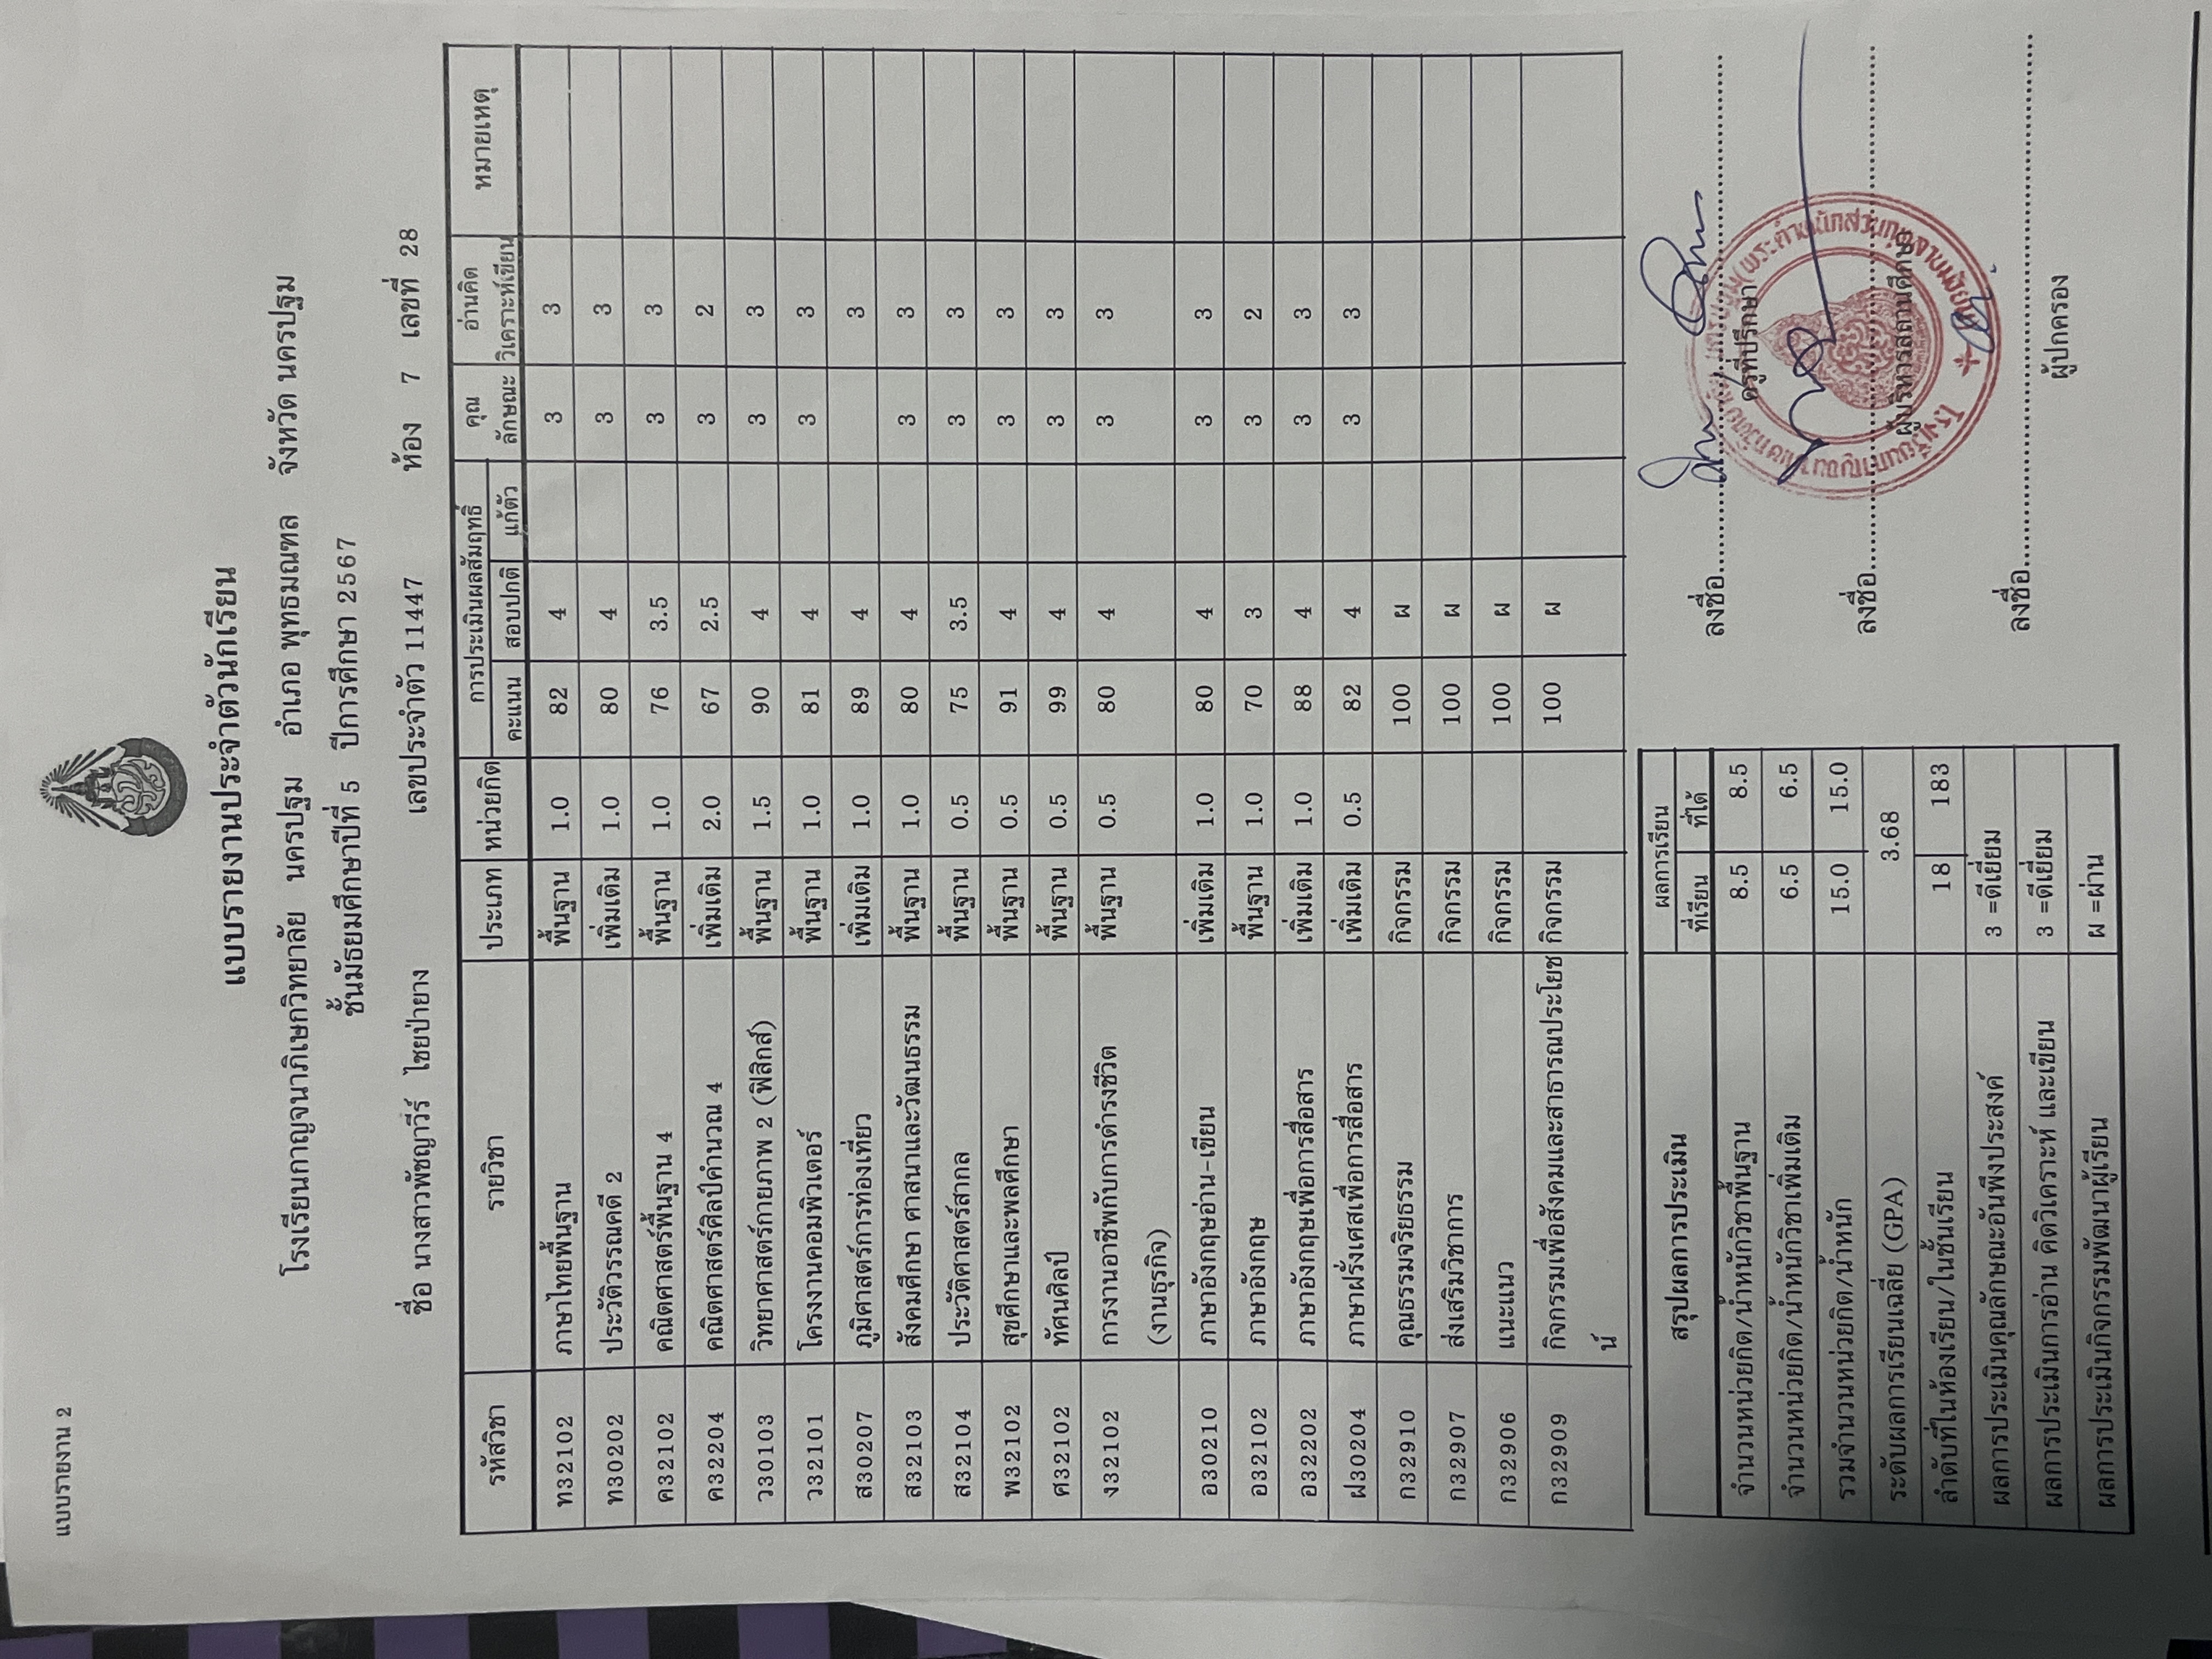 แบบรายงาน 2
แบบรายงานประจำตัวนักเรียน
โรงเรียนกาญจนาภิเษกวิทยาลัย นครปฐม อำเภอ พุทธมณฑล จังหวัด นครปฐม
ชั้นมัธยมศึกษาปีที่ 5 ปีการศึกษา 2567
ชื่อ นางสาวพัชญาวีร์ ไชยป่ายาง เลขประจำตัว 11447 ห้อง 7 เลขที่ 28
รหัสวิชา รายวิชา ประเภท หน่วยกิต การประเมินผลสัมฤทธิ์ คุณลักษณะ อ่านคิดวิเคราะห์เขียน หมายเหตุ
คะแนน สอบปกติ แก้ตัว
ท32102 ภาษาไทยพื้นฐาน พื้นฐาน 1.0 82 4 3 3
ท30202 ประวัติวรรณคดี 2 เพิ่มเติม 1.0 80 4 3 3
ค32102 คณิตศาสตร์พื้นฐาน 4 พื้นฐาน 1.0 76 3.5 3 3
ค32204 คณิตศาสตร์ศิลป์คำนวณ 4 เพิ่มเติม 2.0 67 2.5 3 2
ว30103 วิทยาศาสตร์กายภาพ 2 (ฟิสิกส์) พื้นฐาน 1.5 90 4 3 3
ว32101 โครงงานคอมพิวเตอร์ พื้นฐาน 1.0 81 4 3 3
ส30207 ภูมิศาสตร์การท่องเที่ยว เพิ่มเติม 1.0 89 4 3
ส32103 สังคมศึกษา ศาสนาและวัฒนธรรม พื้นฐาน 1.0 80 4 3 3
ส32104 ประวัติศาสตร์สากล พื้นฐาน 0.5 75 3.5 3 3
พ32102 สุขศึกษาและพลศึกษา พื้นฐาน 0.5 91 4 3 3
ศ32102 ทัศนศิลป์ พื้นฐาน 0.5 99 4 3 3
ง32102 การงานอาชีพกับการดำรงชีวิต พื้นฐาน 0.5 80 4 3 3
(งานธุรกิจ)
อ30210 ภาษาอังกฤษอ่าน-เขียน เพิ่มเติม 1.0 80 4 3 3
อ32102 ภาษาอังกฤษ พื้นฐาน 1.0 70 3 3 2
อ32202 ภาษาอังกฤษเพื่อการสื่อสาร เพิ่มเติม 1.0 88 4 3 3
ฝ30204 ภาษาฝรั่งเศสเพื่อการสื่อสาร เพิ่มเติม 0.5 82 4 3 3
ก32910 คุณธรรมจริยธรรม กิจกรรม 100 ผ
ก32907 ส่งเสริมวิชาการ กิจกรรม 100 ผ
ก32906 แนะแนว กิจกรรม 100 ผ
ก32909 กิจกรรมเพื่อสังคมและสาธารณประโยช กิจกรรม 100 ผ
น์
สรุปผลการประเมิน ผลการเรียน
ที่เรียน ที่ได้
จำนวนหน่วยกิต/น้ำหนักวิชาพื้นฐาน 8.5 8.5
จำนวนหน่วยกิต/น้ำหนักวิชาเพิ่มเติม 6.5 6.5
รวมจำนวนหน่วยกิต/น้ำหนัก 15.0 15.0
ระดับผลการเรียนเฉลี่ย (GPA) 3.68
ลำดับที่ในห้องเรียน/ในชั้นเรียน 18 183
ผลการประเมินคุณลักษณะอันพึงประสงค์ 3 =ดีเยี่ยม
ผลการประเมินการอ่าน คิดวิเคราะห์ และเขียน 3 =ดีเยี่ยม
ผลการประเมินกิจกรรมพัฒนาผู้เรียน ผ =ผ่าน
ลงชื่อ
ครูที่ปรึกษา
ลงชื่อ
ผู้บริหารสถานศึกษา
ลงชื่อ
ผู้ปกครอง